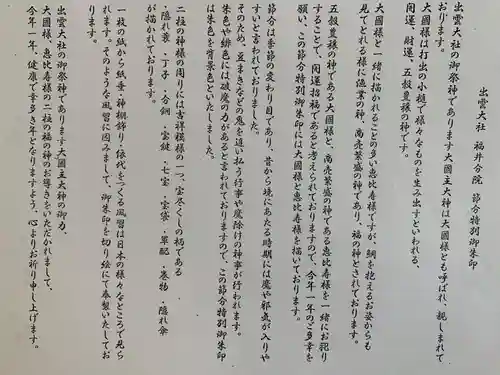 出雲大社 福井分院 節分特別御朱印
出雲大社の御祭神であります大國主大神は大國様とも呼ばれ、親しまれて
おります。
大國様は打出の小槌で様々なものを生み出すといわれる、
開運、財運、五穀豊穣の神です。
大國様と一緒に描かれることの多い恵比寿様ですが、鯛を抱えるお姿からも
見てとれる様に漁業の神、商売繁盛の神であり、福の神とされております。
五穀豊穣の神である大國様と、商売繁盛の神である恵比寿様を一緒にお祀り
することで、開運招福であると考えられておりますので、今年一年のご多幸を
願い、この節分特別御朱印には大國様と恵比寿様を描いております。
節分は季節の変わり目であり、昔から境にあたる時期には魔や邪気が入りや
すいと言われておりました。
そのため、豆まきなどの鬼を追い払う行事や魔除けの神事が行われます。
朱色や緋色には破魔の力があると言われておりますので、この節分特別御朱印
は朱色を背景色といたしました。
二柱の神様の周りには吉祥模様の一つ、宝尽くしの柄である
・隠れ蓑・丁子・分銅・宝鍵・七宝・宝袋・軍配・巻物・隠れ傘
が描かれております。
一枚の紙から紙垂・神棚飾り・依代をつくる風習は日本の様々なところで見ら
れます。そのような風習に因みまして、御朱印を切り絵にて奉製いたしてお
ります。
出雲大社の御祭神であります大國主大神の御力、
大國様、恵比寿様の二柱の福の神のお導きをいただかれまして、
今年一年、健康で幸多き年となりますよう、心よりお祈り申し上げます。